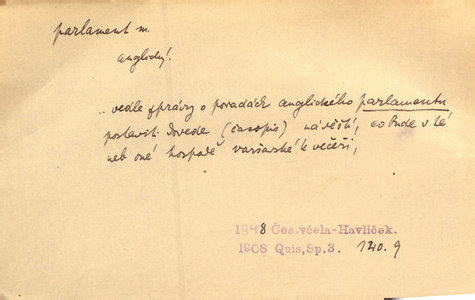 parlament m.
anglický.
„vedle zprávy o poradách anglického parlamentu
postavit dovede (časopis) návěští, co bude v té
neb oné hospodě varšavské k večeři,
1848 Čes. včela-Havlíček.
1908 Quis, Sp. 3. 120.9